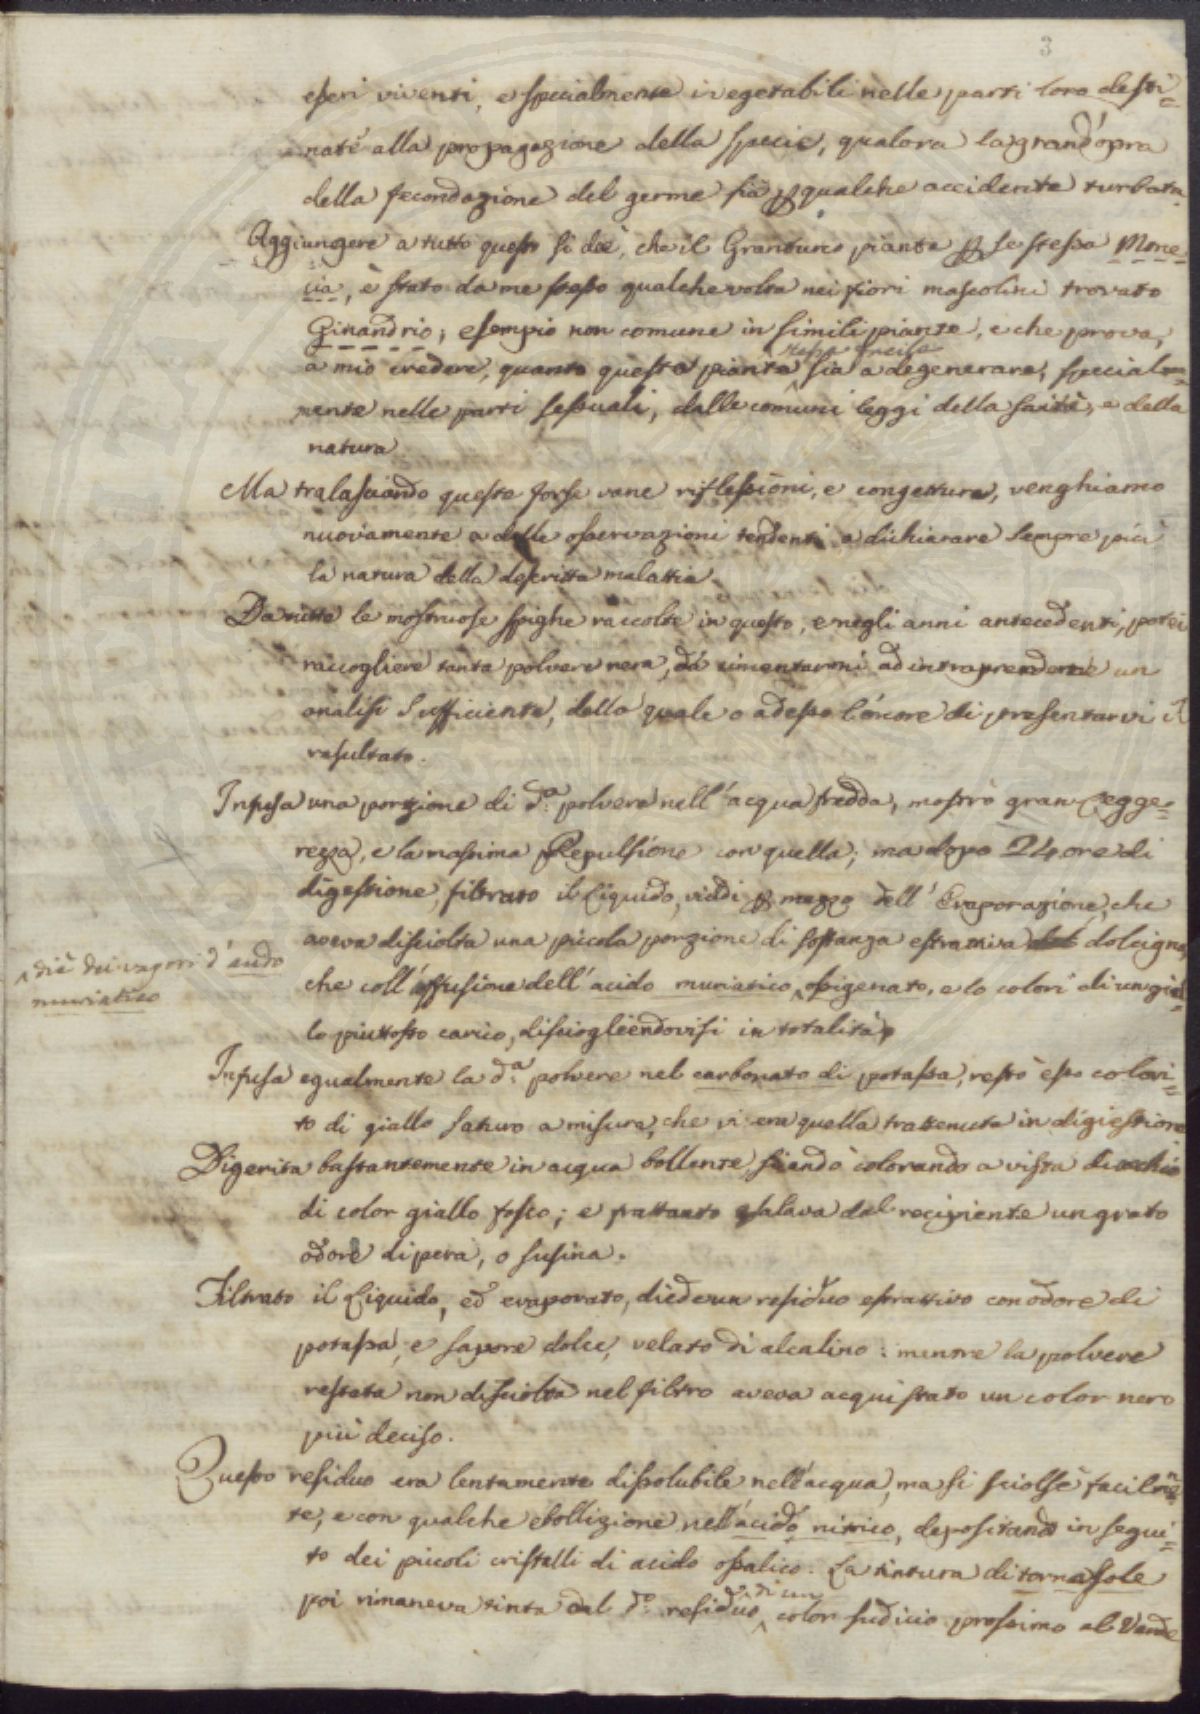 3
esseri viventi, e specialmente i vegetabili nelle parti loro desti=
nate alla propagazione della specie, qualora la grand'opra
della fecondazione del germe sia p qualche accidente turbata.
Aggiungere a tutto questo si dee, che il Granturco pianta p se stessa Mone=
cia, è stato da me stesso qualche volta nei fiori mascolini trovato
Ginandrio; esempio non comune in simili piante, e che prova,
a mio credere, quanto questa pianta sia resa facile a degenerare, special=
mente nelle parti sessuali, dalle comuni leggi della sanità, e della
natura
Ma tralasciando queste forse vane riflessioni, e congetture, venghiamo
nuovamente a delle osservazioni tendenti a dichiarare sempre più
la natura della descritta malattia.
Da tutte le mostruose spighe raccolte in questo, e negli anni antecedenti, potei
raccogliere tanta polvere nera, da cimentarmi ad intraprenderne un
analisi sufficiente, della quale o adesso l'onore di presentarvi il
resultato.
Infusa una porzione di d.a polvere nell'acqua fredda, mostrò gran Legge=
rezza, e la massima Repulsione con quella; ma dopo 24 ore di
digestione, filtrato il Liquido, viddi p mezzo dell'Evaporazione, che
aveva disciolta una piccola porzione di sostanza estrattiva dolcigna,
che coll'affusione dell'acido muriatico ossigenato, diè dei vapori d'acido
muriatico
e lo colorì di un gial=
lo piuttosto carico, disciogliendovisi in totalità.
Infusa egualmente la d.a polvere nel carbonato di potassa, restò esso colori=
to di giallo saturo a misura, che vi era quella trattenuta in digestione
Digerita bastantemente in acqua bollente, si andò colorando a vista d'occhio
di color giallo fosco; e frattanto esalava dal recipiente un grato
odore di pera, o susina.
Filtrato il Liquido, ed evaporato, diede un residuo estrattivo con odore di
potassa, e sapore dolce, velato di alcalino: mentre la polvere
restata non disciolta nel filtro aveva acquistato un color nero
più deciso.
Questo residuo era lentamente dissolubile nell'acqua, ma si sciolse facilmen
te, e con qualche ebollizione nell'acido nitrico, depositando in segui=
to dei piccoli cristalli di acido ossalico. La tintura di tornasole
poi rimaneva tinta dal d.o residuo di un color sudicio prossimo al Verde